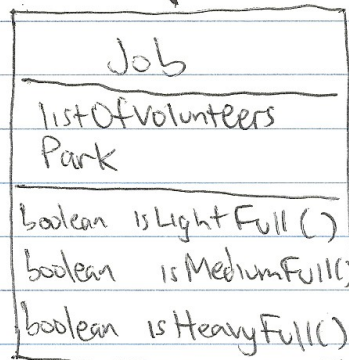 Job
listOfVolunteers
Park
boolean isLightFull()
boolean isMediumFull(
boolean isHeavyFull()